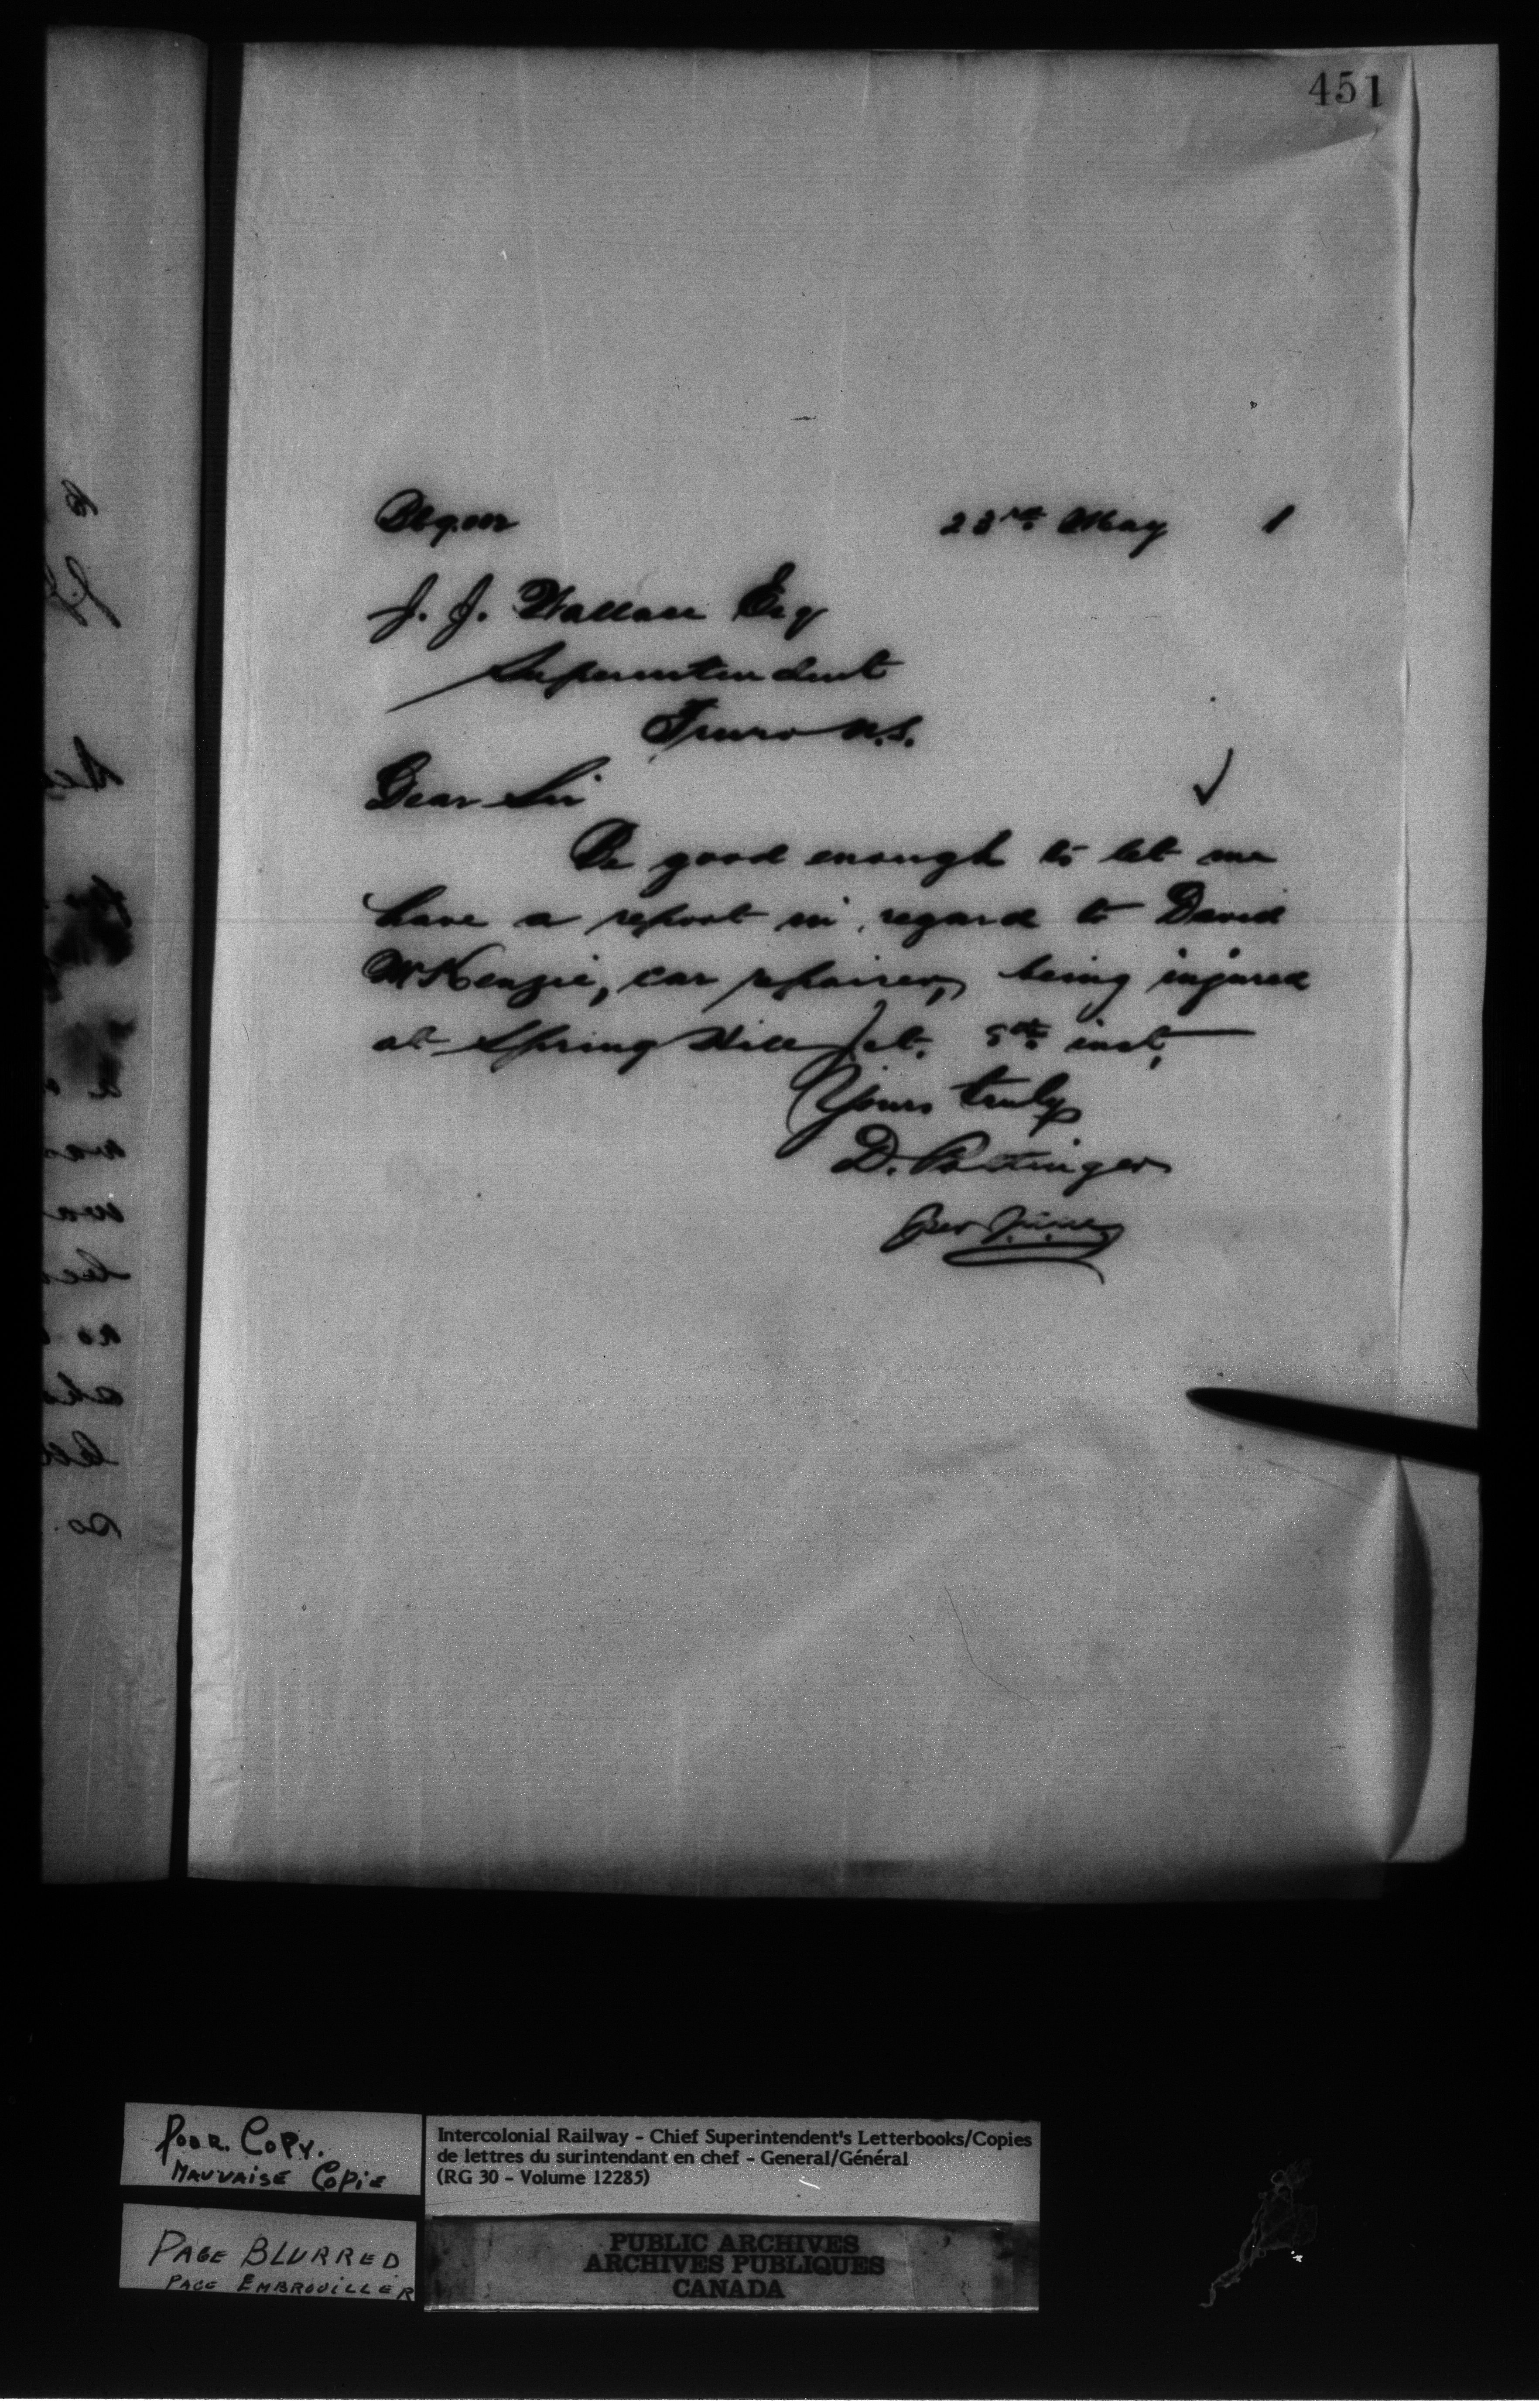 451
23rd May 1
J. J. Wallace Esq
Superintendent
Truro N.S.
Dear Sir
Be good enough to let me
have a report in regard to David
McKenzie, car repairer, being injured
at Spring Hill Jct. inst,
Yours truly
D. Pottinger
per
Poor. Copy.
Mauvaise Copie
Page Blurred
Page Embrouiller
Intercolonial Railway - Chief Superintendent's Letterbooks/Copies
de lettres du surintendant en chef - General/Général
(RG 30 - Volume 12285)
PUBLIC ARCHIVES
ARCHIVES PUBLIQUES
CANADA